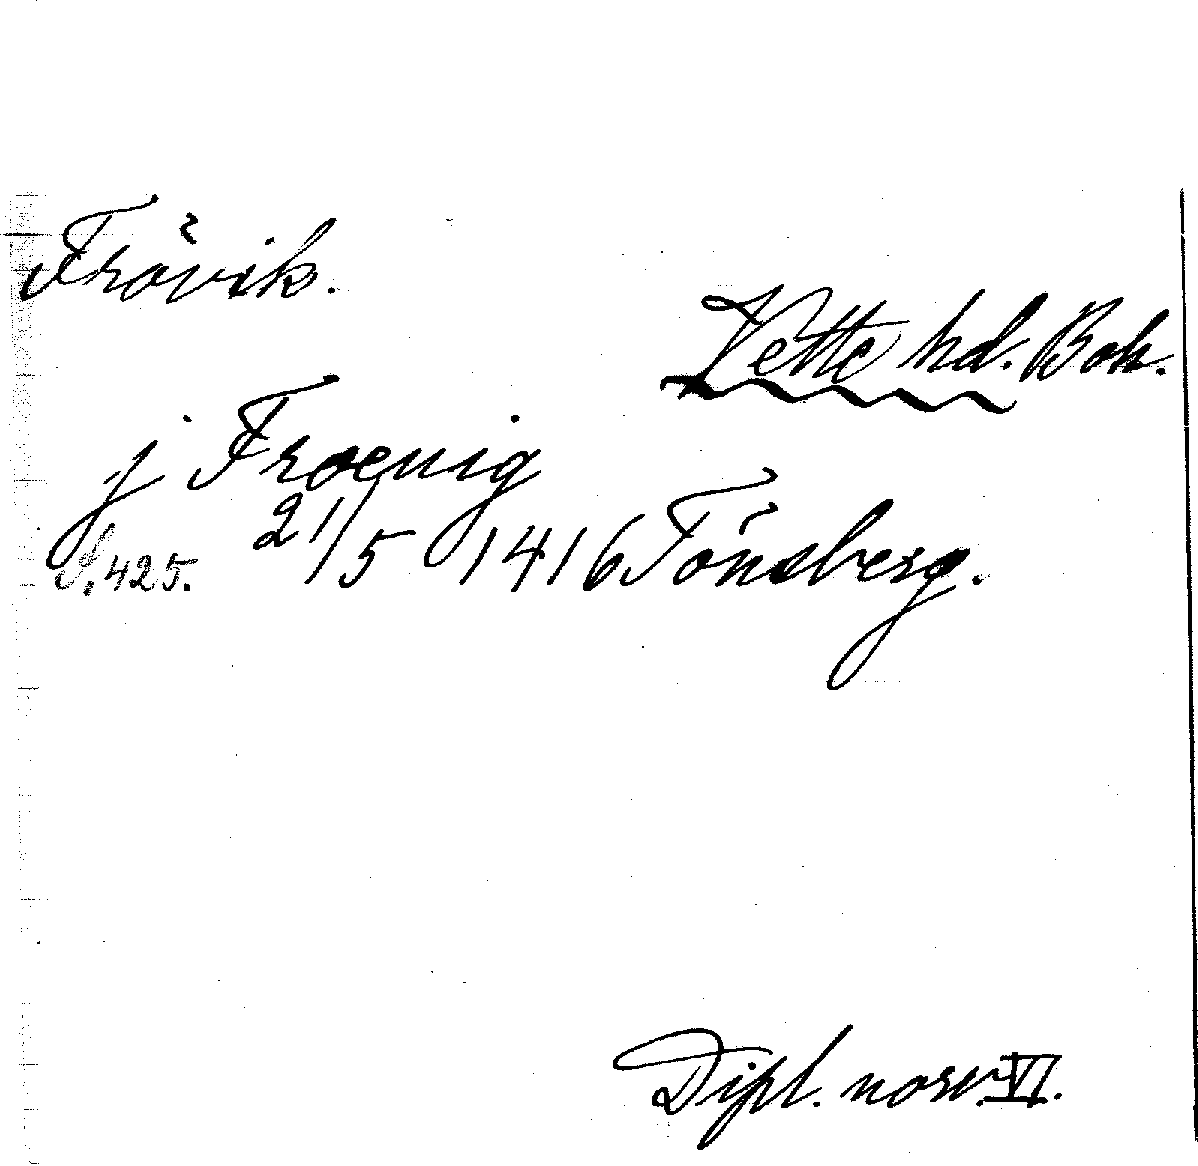 Frövik.
Vette hd. Boh.
j Froeuig
S. 425. 21/5 1416 Tönsberg.
Dipl. norv. VI.